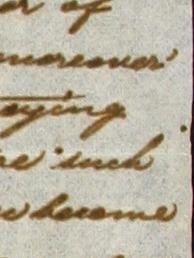 of
moreover
aying
such
become